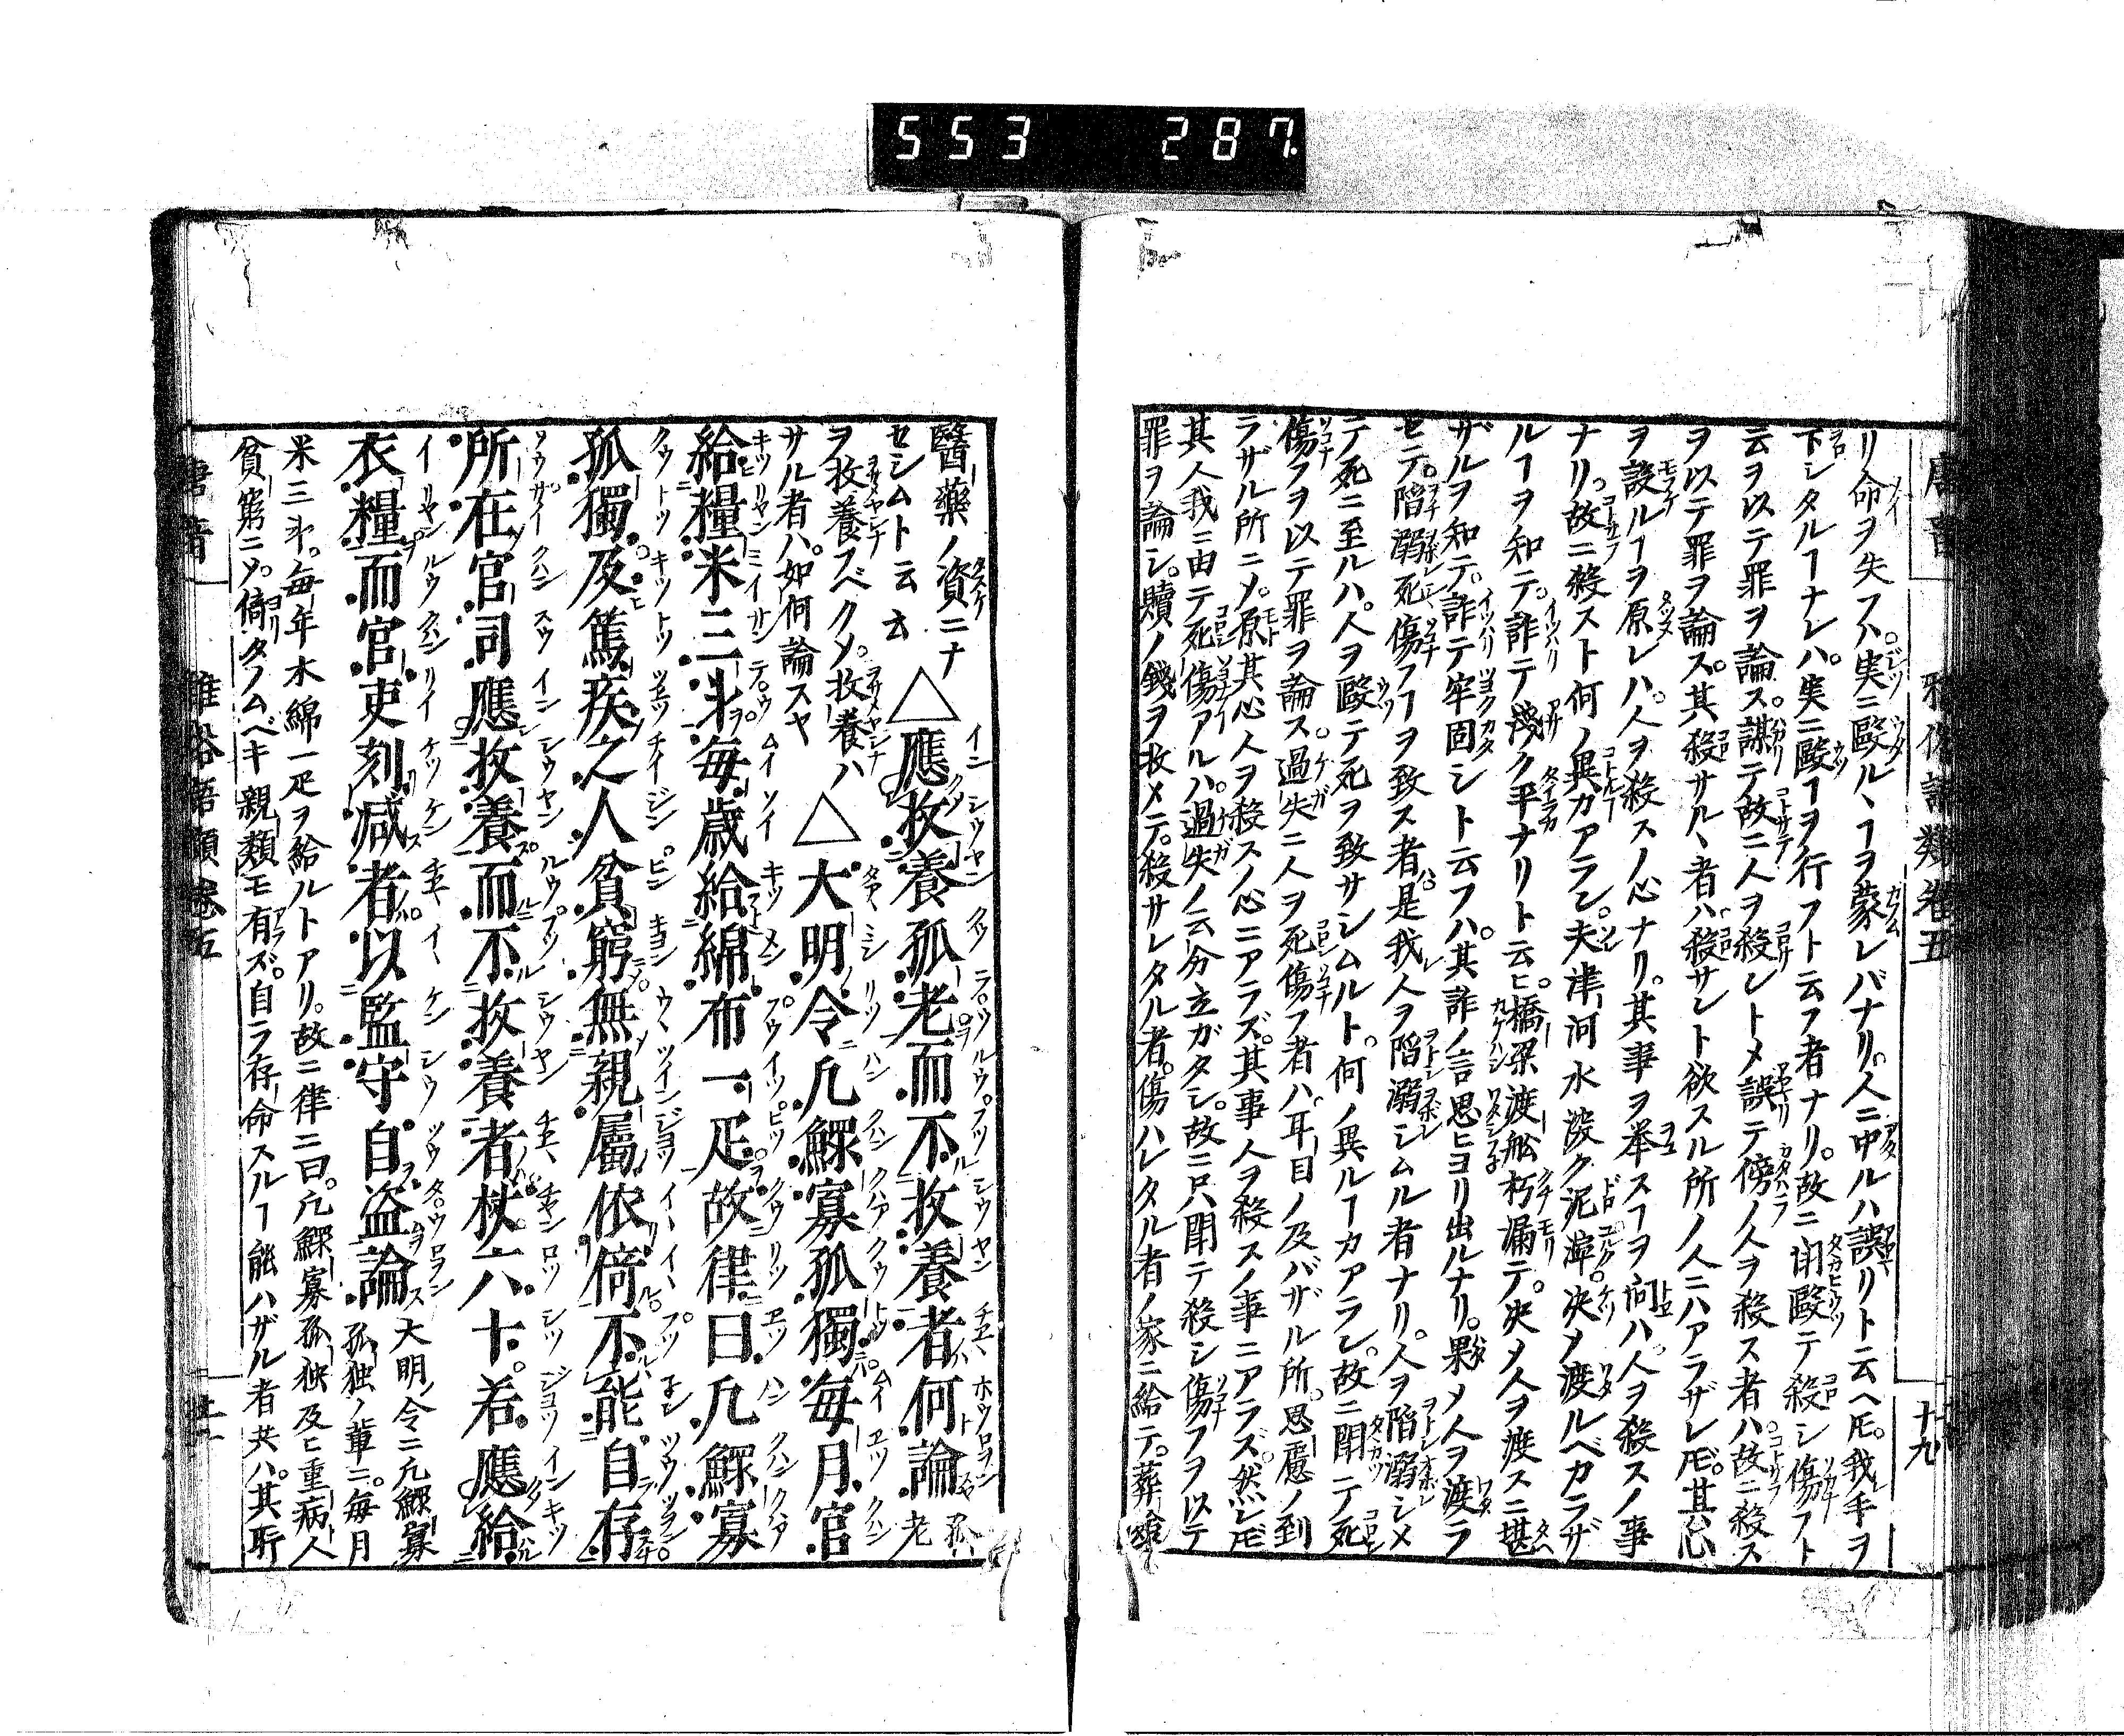 553 287
唐音 雅俗語類卷五 十九
リ命ヲ失フハ実ニ毆ルヽヿヲ蒙レバナリ。人ニ中ルハ誤リト云ヘ𪜈。我手ヲ
下シタルヿナレバ。実ニ毆ヿヲ行フト云フ者ナリ。故ニ鬪毆テ殺シ傷フト
云ヲ以テ罪ヲ論ス。謀テ故ニ人ヲ殺シトメ誤テ傍ノ人ヲ殺ス者ハ故ニ殺ス
ヲ以テ罪ヲ論ス。其殺サルヽ者ハ殺サント欲スル所ノ人ニハアラザレ𪜈。其心
ヲ設ルヿヲ原レハ。人ヲ殺スノ心ナリ。其事ヲ举スヿヲ问ハ人ヲ殺スノ事
ナリ。故ニ殺スト何ノ異カアラン。夫津河水深ク泥濘。决メ渡ルベカラザ
ルヿヲ知テ。詐テ淺ク平ナリト云ヒ。橋梁渡舩朽漏テ。决メ人ヲ渡スニ堪
ザルヲ知テ。詐テ牢固シト云フハ。其詐ノ言思ヒヨリ出ルナリ。果メ人ヲ渡ラ
セテ。陷溺死傷フヿヲ致ス者。是我人ヲ陷溺シムル者ナリ。人ヲ陷溺シメ
テ死ニ至ルハ。人ヲ毆テ死ヲ致サシムルト。何ノ異ルヿカアラン。故ニ鬪ニテ死
傷フヲ以テ罪ヲ論ス。過失ニ人ヲ死傷フ者ハ。耳目ノ及バザル所。思慮ノ到
ラザル所ニメ。原其心人ヲ殺スノ心ニアラズ。其事人ヲ殺スノ事ニアラズ。然レ𪜈
其人我ニ由テ死傷アルハ。過失ノ云分立ガタシ。故ニ只鬪テ殺シ傷フヲ以テ
罪ヲ論シ。贖ノ錢ヲ收メテ。殺サレタル者。傷ハレタル者ノ家ニ給テ。葬
醫藥ノ資ニナ
セシムト云云
△應收養孤老而不收養者何論
孤老
ヲ收養フベクメ。收養ハ
サル者ハ。如何論スヤ
△大明令凡鰥寡孤獨每月官
給糧米三斗每歲給綿布一疋故律曰凡鰥寡
孤獨及篤疾之人貧窮無親屬依倚不能自存
所在官司應收養而不收養者杖六十若應給
衣糧而官吏刻减者以監守自盗論
大明ノ令ニ凡鰥寡
孤独ノ輩ニ。每月
米三斗。每年木綿一疋ヲ給ルトアリ。故ニ律ニ曰。凡鰥寡孤独及ヒ重病人
貧窮ニソ。倚タノムベキ親類モ有ズ。自ラ存命スルヿ能ハザル者共ハ。其所
唐音 雅俗語類卷五